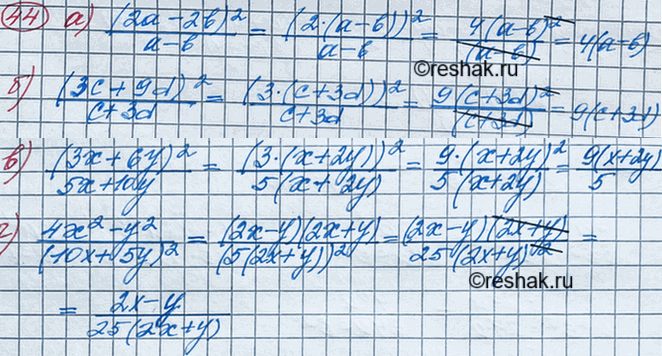 44 а) (2a-2b)²/(a-b) = (2·(a-b))²/(a-b) = 4(a-b)²/(a-b) = 4(a-b)
©reshak.ru
б) (3c+9d)²/(c+3d) = (3·(c+3d))²/(c+3d) = 9(c+3d)²/(c+3d) = 9(c+3d)
в) (3x+6y)²/(5x+10y) = (3·(x+2y))²/(5(x+2y)) = 9·(x+2y)²/(5(x+2y)) = 9(x+2y)/5
г) (4x²-y²)/(10x+5y)² = (2x-y)(2x+y)/(5(2x+y))² = (2x-y)(2x+y)/(25(2x+y)²) =
©reshak.ru
= (2x-y)/(25(2x+y))